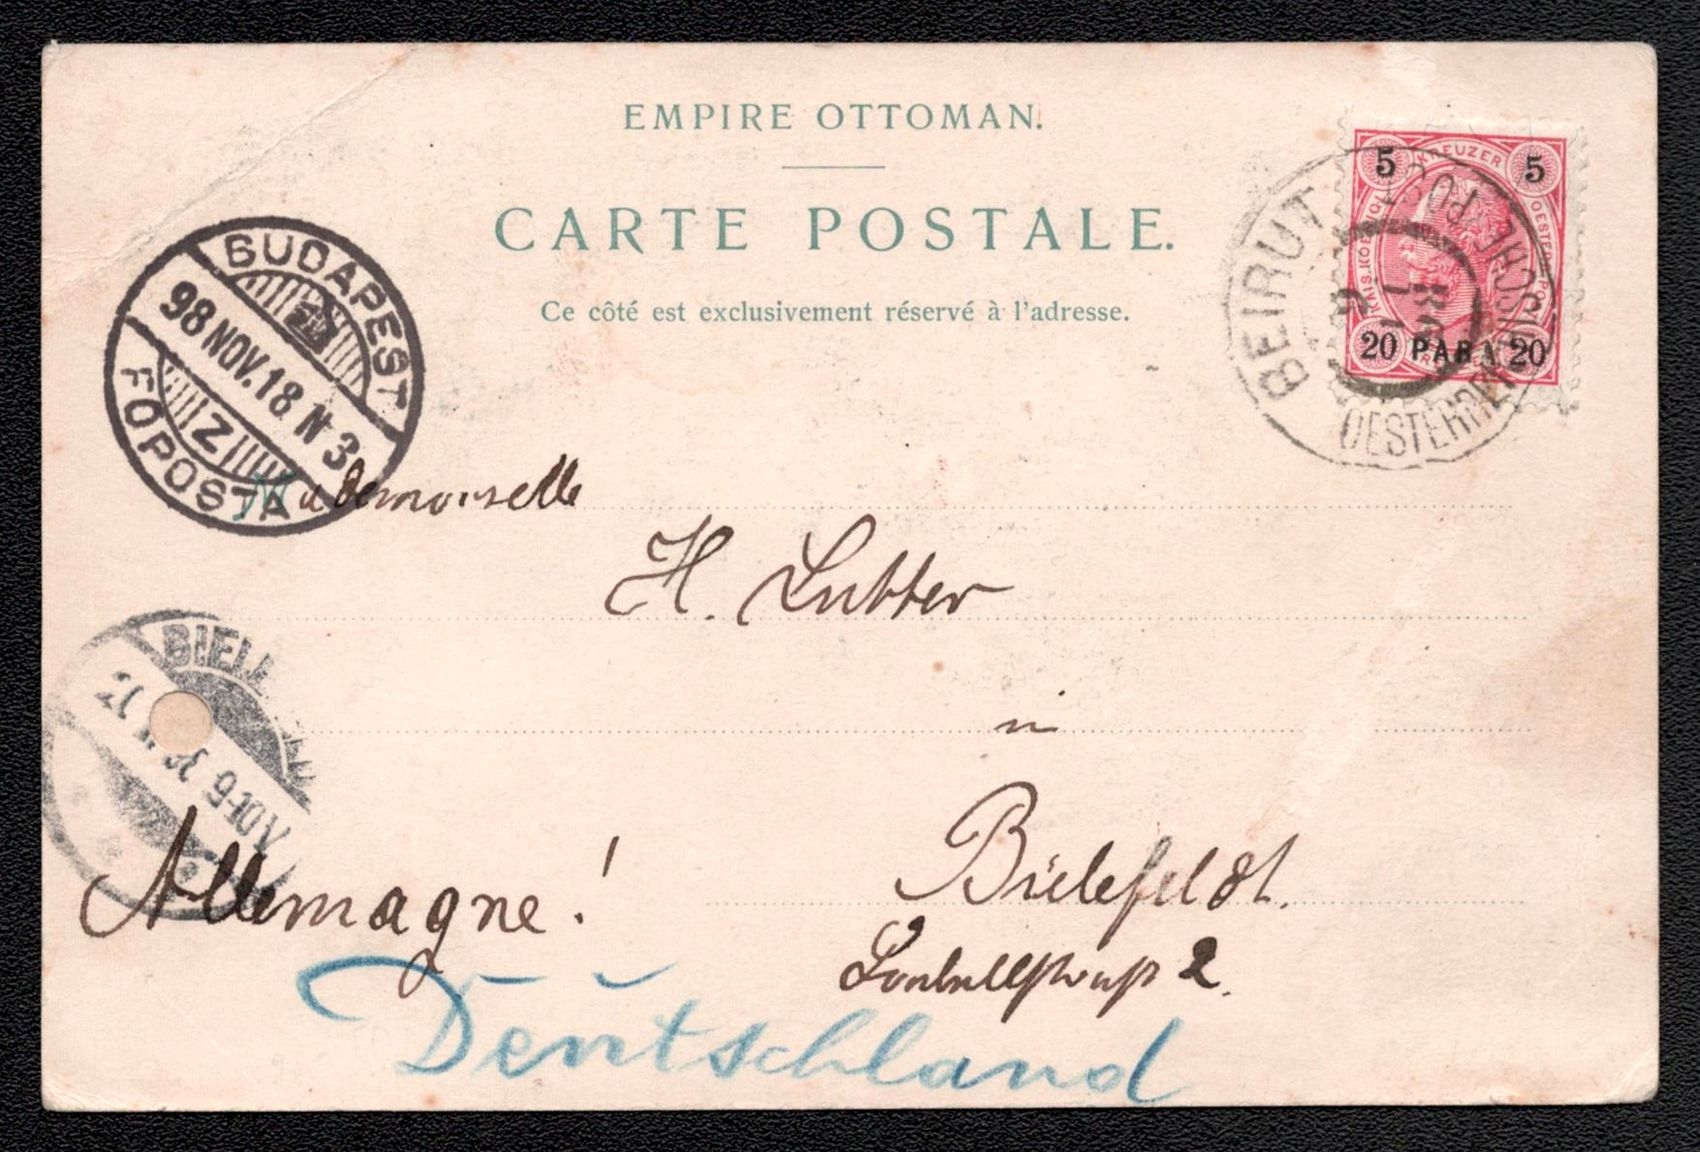 EMPIRE OTTOMAN.
CARTE POSTALE.
Ce côté est exclusivement réservé à l'adresse.
5 KREUZER 5
20 PARA 20
BEIRUT
BUDAPEST
98 NOV. 18 N 3
Z
FŐPOSTA
Mademoiselle
H. Lutter
in
9-10V
Bielefeldt.
Allemagne!
2.
Deutschland